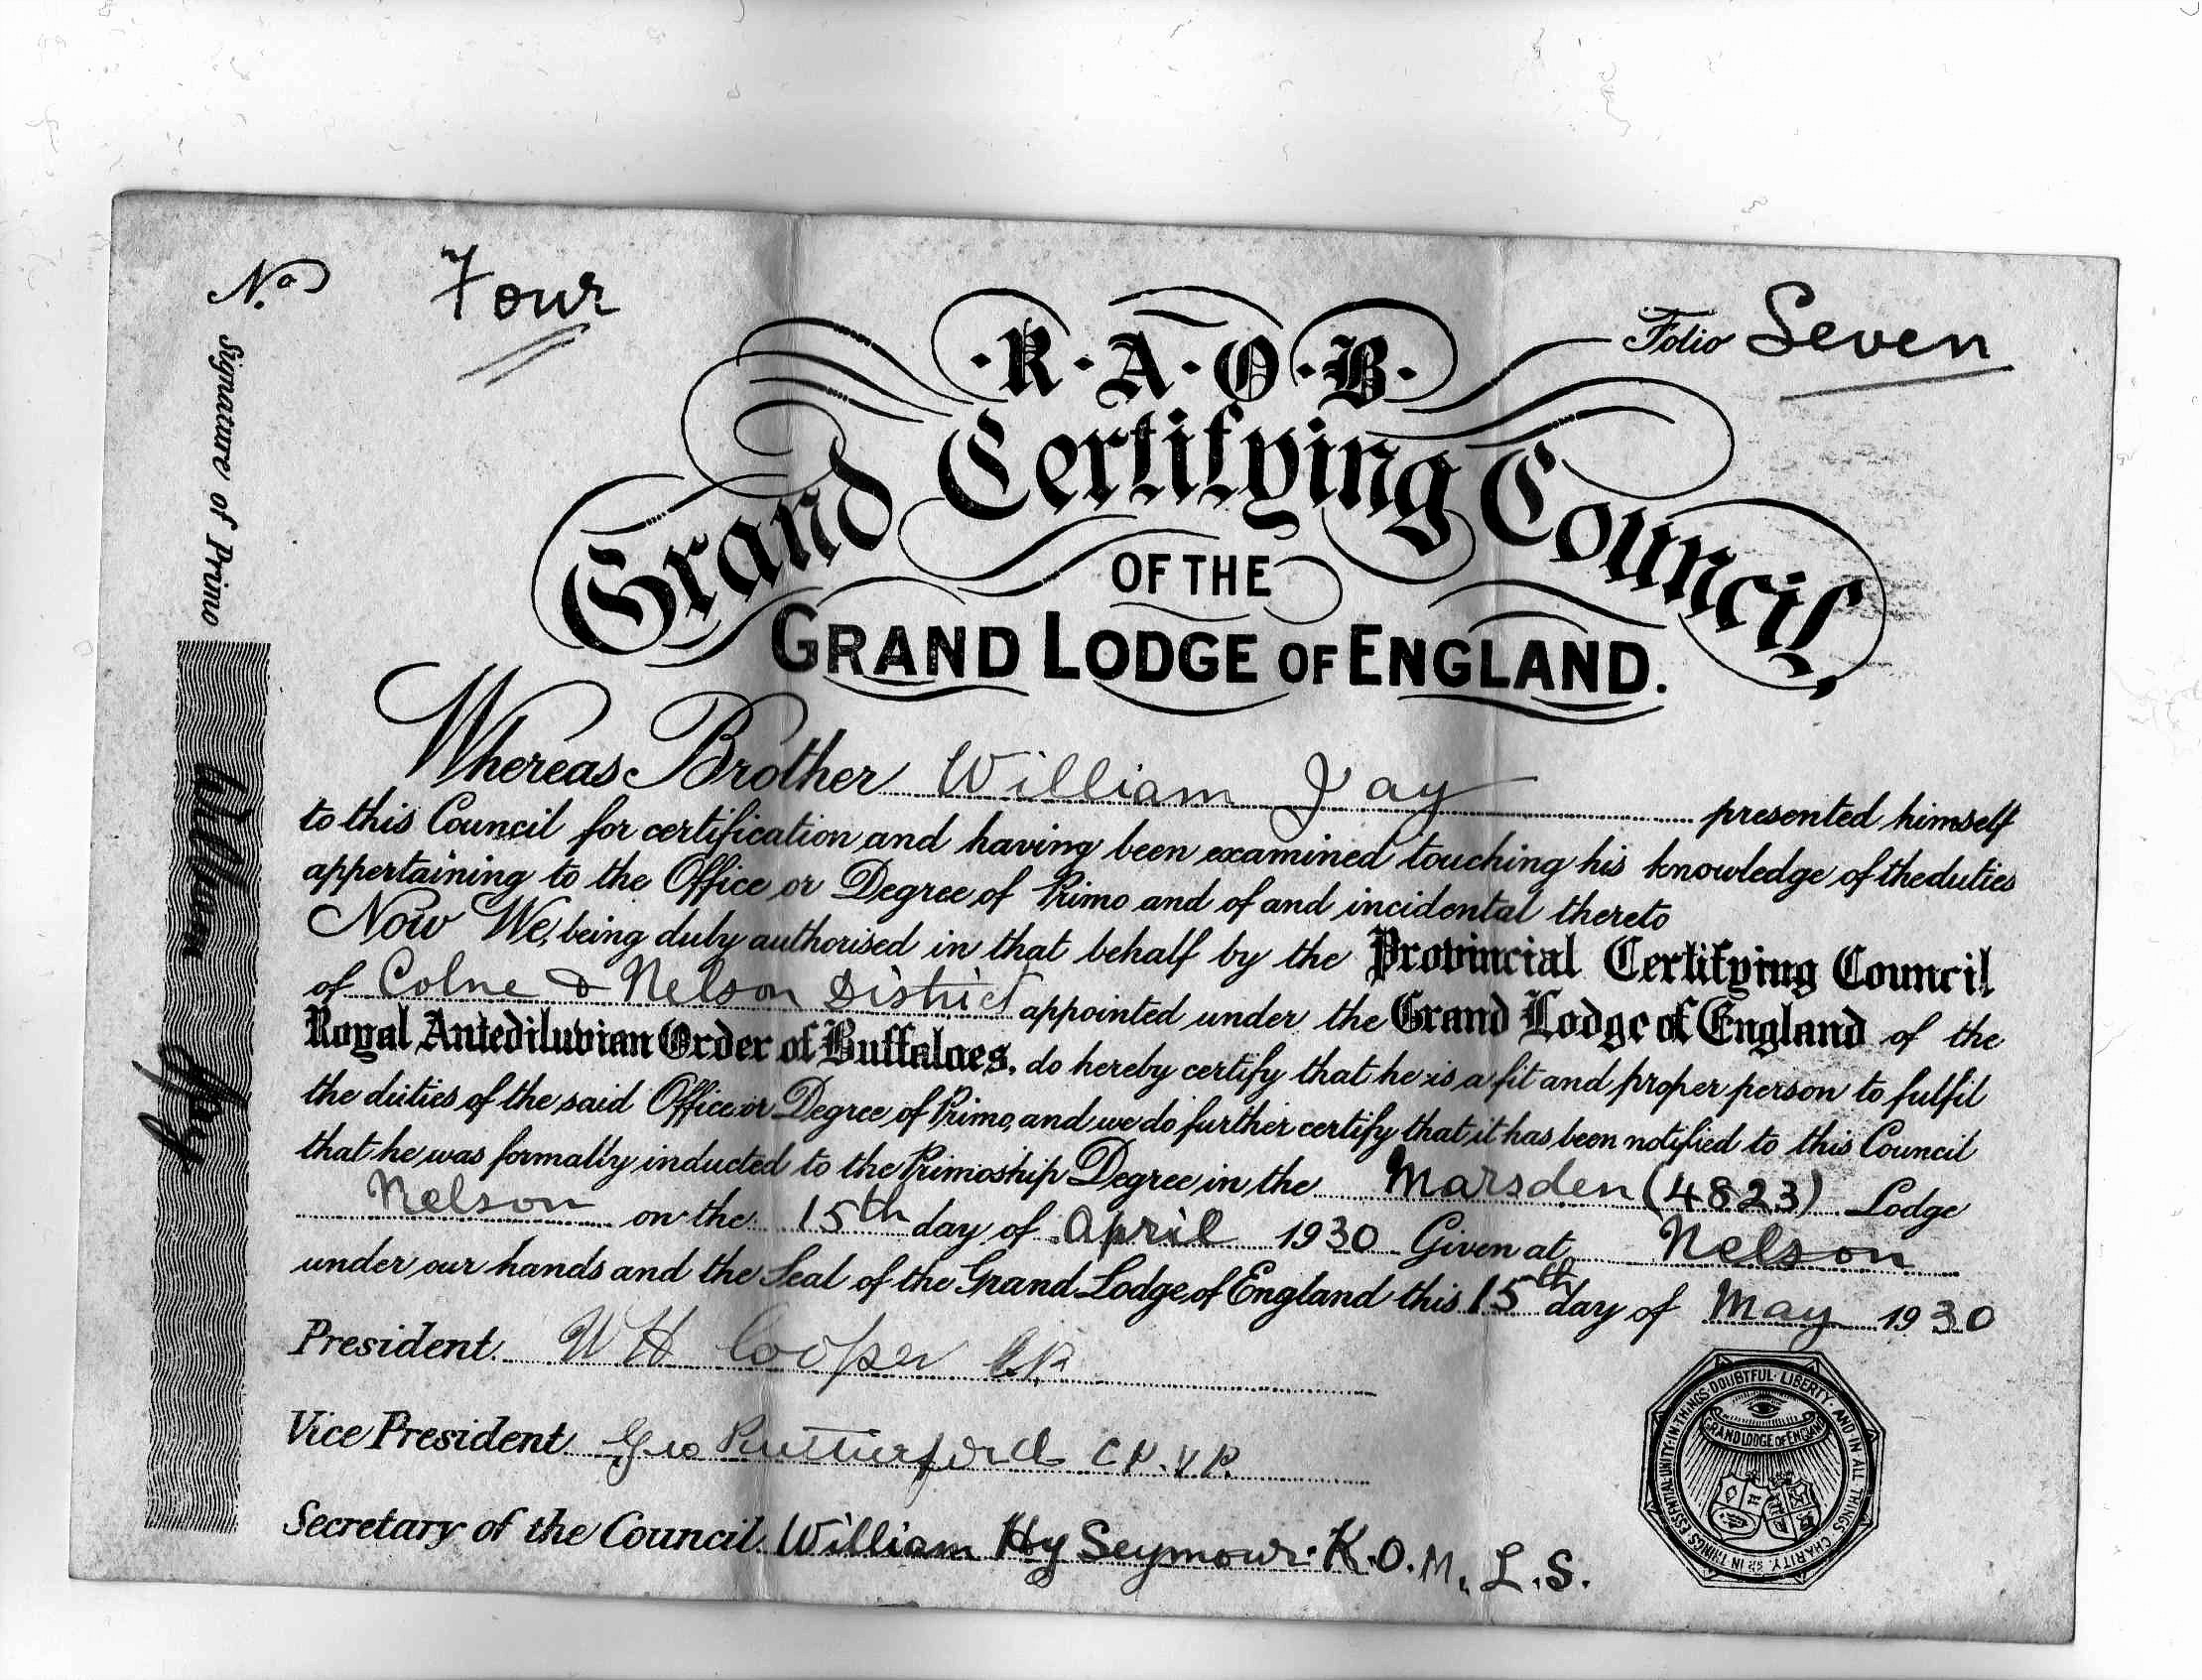 No Four
Folio Seven
R.A.O.B.
Grand Certifying Council,
OF THE
GRAND LODGE OF ENGLAND.
Whereas Brother William Jay presented himself
to this Council for certification and having been examined touching his knowledge of the duties
appertaining to the Office or Degree of Primo and of and incidental thereto
Now We, being duly authorised in that behalf by the Provincial Certifying Council
of Colne & Nelson District appointed under the Grand Lodge of England of the
Royal Antediluvian Order of Buffaloes, do hereby certify that he is a fit and proper person to fulfil
the duties of the said Office or Degree of Primo, and we do further certify that it has been notified to this Council
that he was formally inducted to the Primoship Degree in the Marsden (4823) Lodge
Nelson on the 15th day of April 1930 Given at Nelson
under our hands and the Seal of the Grand Lodge of England this 15th day of May 1930
President W H Cooper
Vice President Geo Rutherford C.P. V.P.
Secretary of the Council William Hy Seymour K.O.M. L.S.
Signature of Primo William Jay
IN THINGS ESSENTIAL UNITY · IN THINGS DOUBTFUL · LIBERTY · AND IN ALL THINGS CHARITY
GRAND LODGE OF ENGLAND